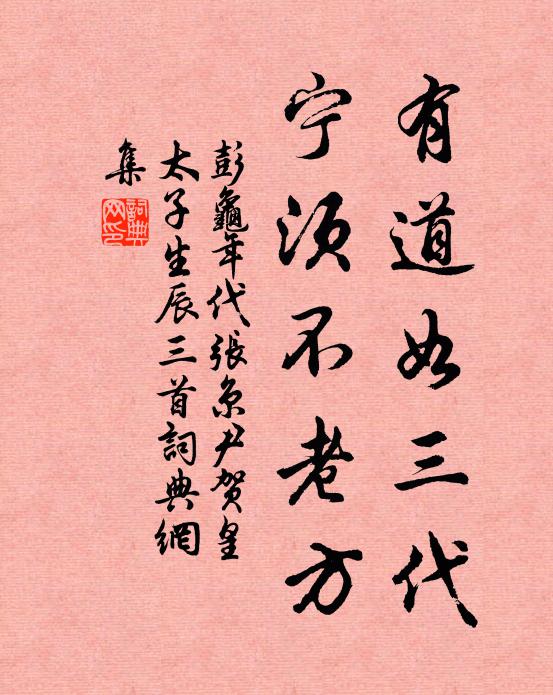 有道如三代
宁须不老方
彭龜年代張京尹賀皇
太子生辰三首詞典網
集
詞典網印